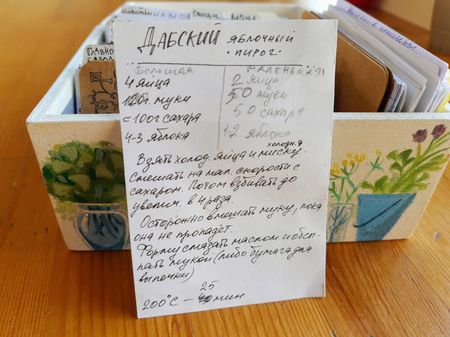 ДАБСКИЙ ЯБЛОЧНЫЙ
ПИРОГ.
БОЛЬШАЯ
4 яйца
120г. муки
≈100г сахара
4-3 яблока
МАЛЕНЬКАЯ
2 яйца
50 муки
50 сахара
1-2 яблока
Взять холод. яйца и холодн. миску
смешать на мал. скорости с
сахаром. Потом взбивать до
увелич. в 4 раза.
Осторожно вмешать муку, пока
она не пропадёт.
Форму смазать маслом и обсы-
пать мукой (либо бумага для
выпечки)
25
200°C — мин